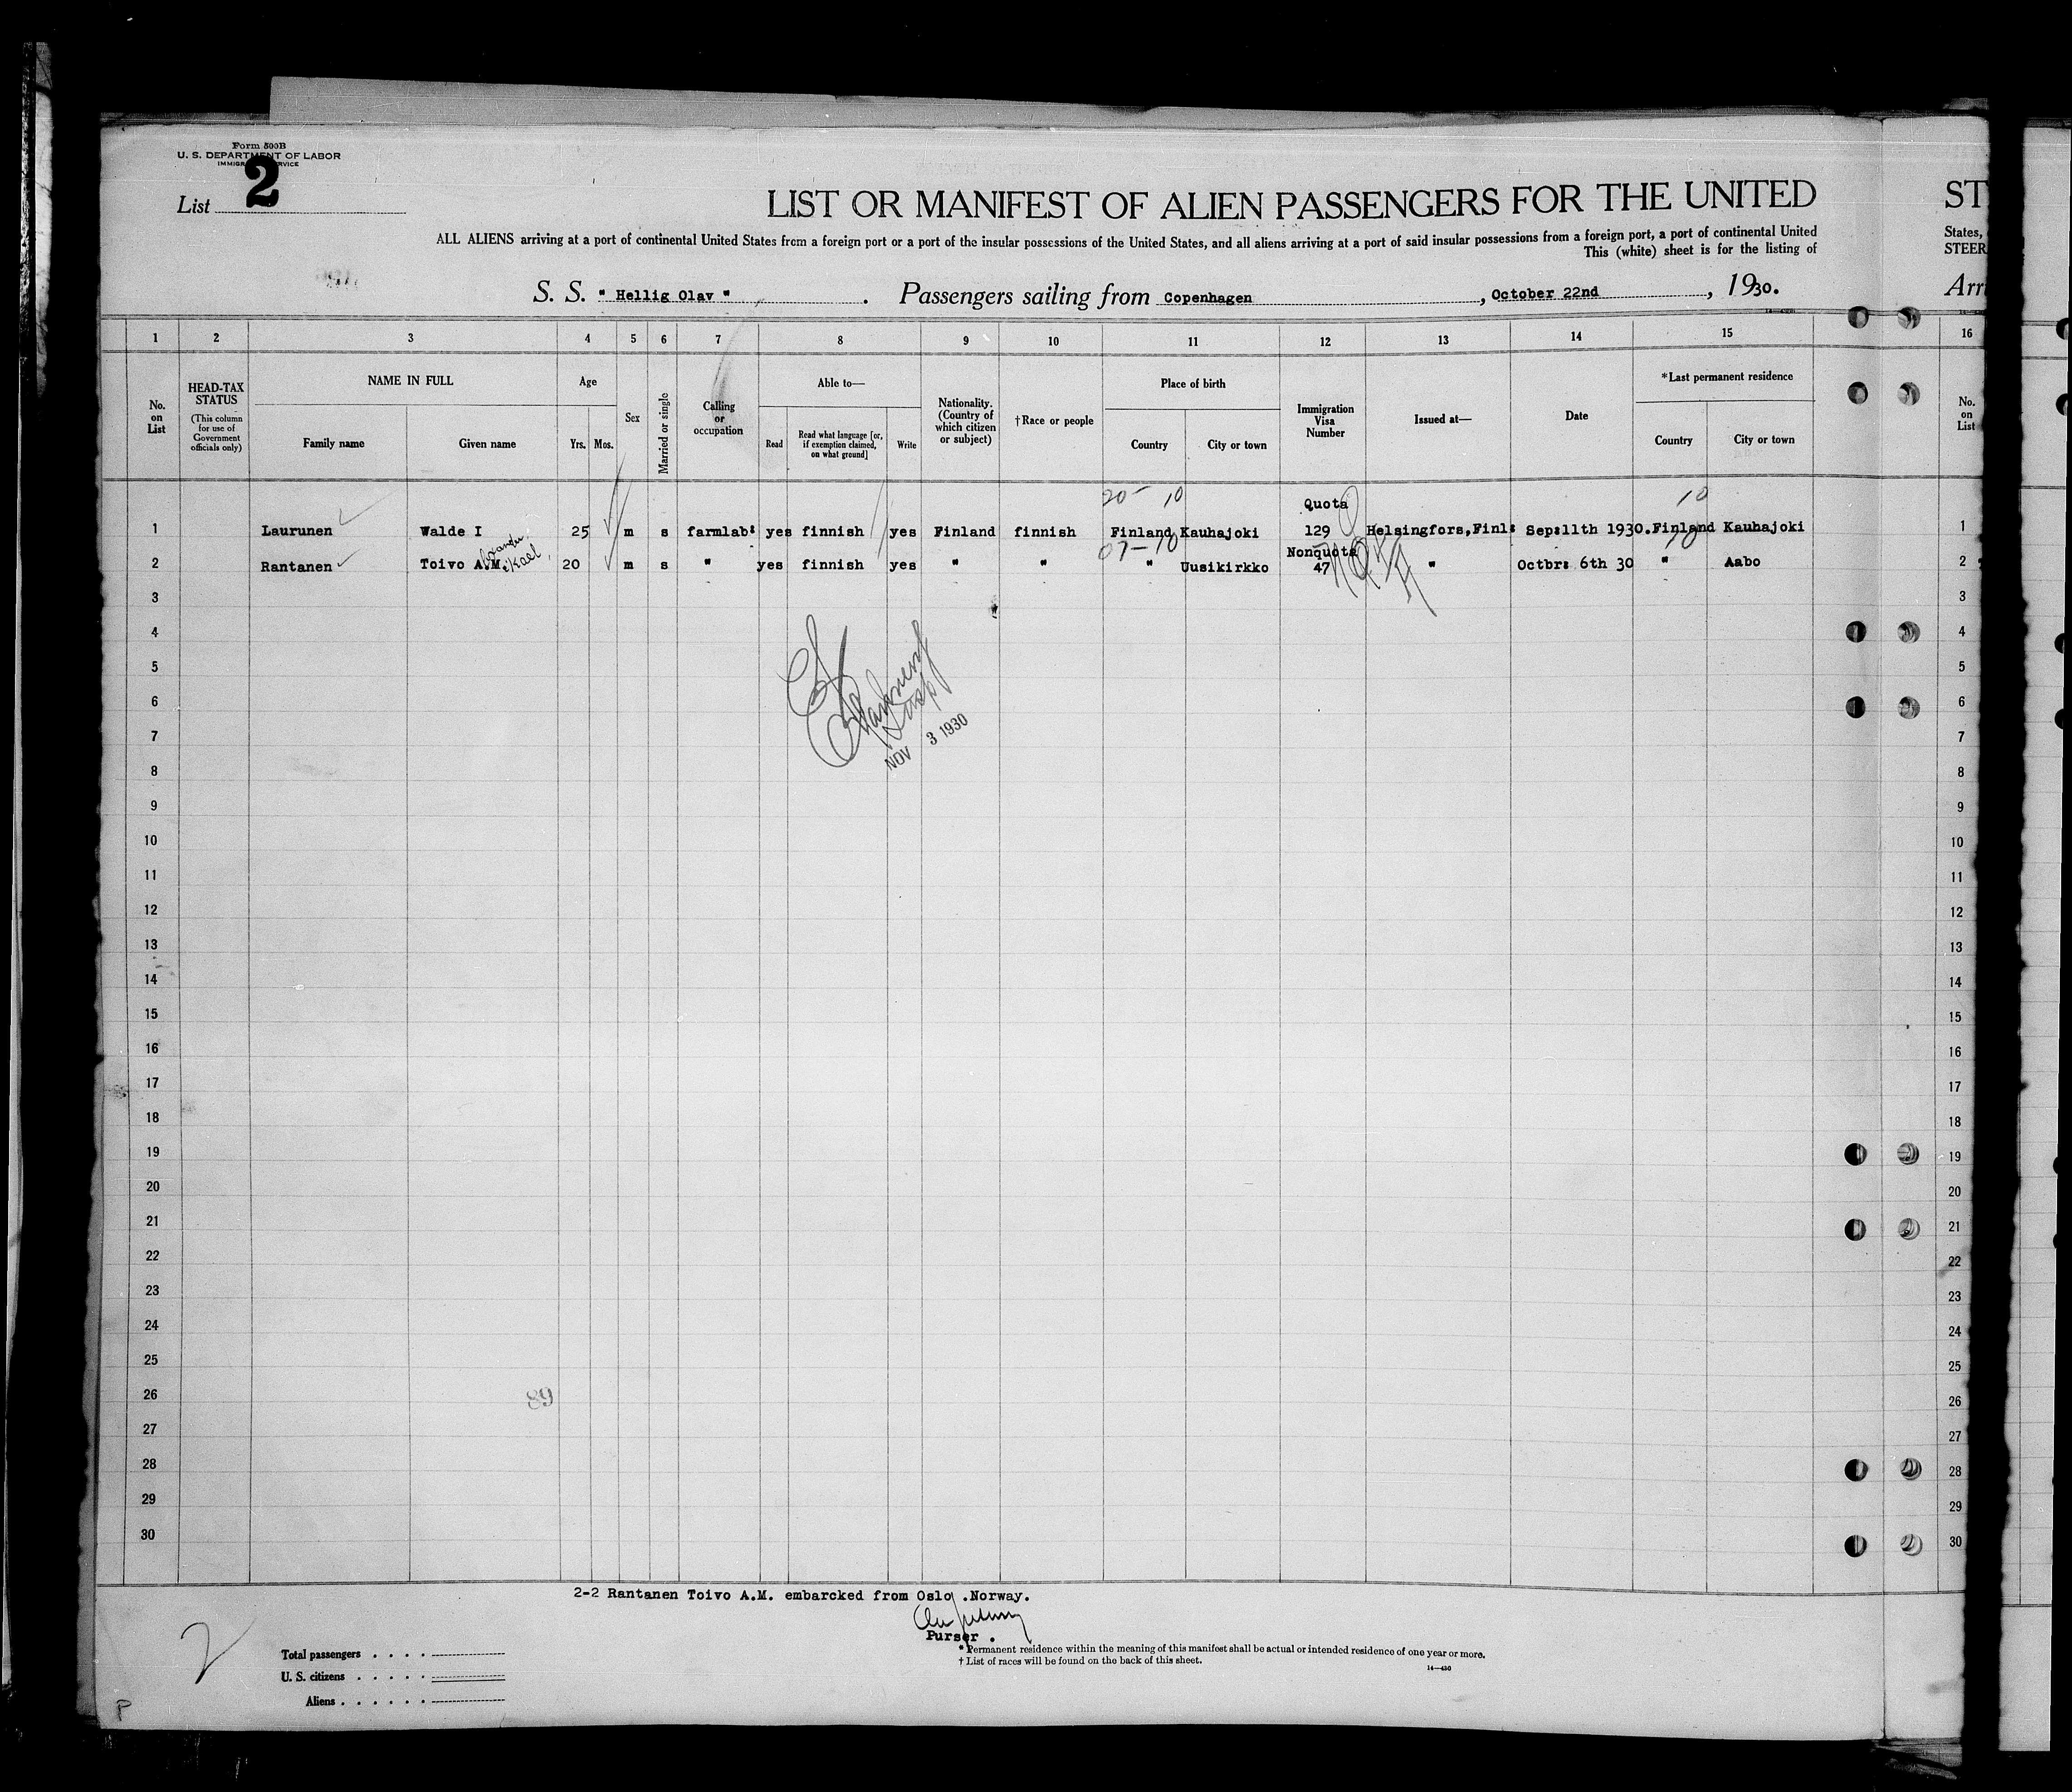 Form 500B
U. S. DEPARTMENT OF LABOR
IMMIGRATION SERVICE
List 2
LIST OR MANIFEST OF ALIEN PASSENGERS FOR THE UNITED
ST
ALL ALIENS arriving at a port of continental United States from a foreign port or a port of the insular possessions of the United States, and all aliens arriving at a port of said insular possessions from a foreign port, a port of continental United
States,
This (white) sheet is for the listing of
STEER
S. S. " Hellig Olav " . Passengers sailing from Copenhagen , October 22nd , 1930.
Arri
1 2 3 4 5 6 7 8 9 10 11 12 13 14 15 16
No. on List
HEAD-TAX STATUS
(This column for use of Government officials only)
NAME IN FULL
Family name
Given name
Age
Yrs. Mos.
Sex
Married or single
Calling or occupation
Able to—
Read
Read what language [or, if exemption claimed, on what ground]
Write
Nationality. (Country of which citizen or subject)
†Race or people
Place of birth
Country
City or town
Immigration Visa Number
Issued at—
Date
*Last permanent residence
Country
City or town
No. on List
20- 10
Quota
10
1 Laurunen Walde I 25 m s farmlab: yes finnish yes Finland finnish Finland Kauhajoki 129 Helsingfors,Finl: Sep:11th 1930. Finland Kauhajoki 1
07-10
Nonquota
10
2 Rantanen Toivo A.M. 20 m s " yes finnish yes " " " Uusikirkko 47 " Octbr: 6th 30 " Aabo 2
3 3
4 4
5 5
6 6
7 7
NOV 3 1930
8 8
9 9
10 10
11 11
12 12
13 13
14 14
15 15
16 16
17 17
18 18
19 19
20 20
21 21
22 22
23 23
24 24
25 25
26 89 26
27 27
28 28
29 29
30 30
2-2 Rantanen Toivo A.M. embarcked from Oslo .Norway.
Purser .
2
Total passengers . . . .
U. S. citizens . . . . .
Aliens . . . . . .
* Permanent residence within the meaning of this manifest shall be actual or intended residence of one year or more.
† List of races will be found on the back of this sheet.
14—430
P